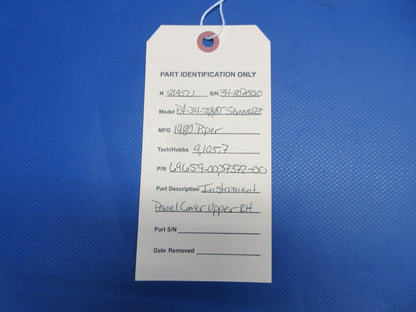 PART IDENTIFICATION ONLY
N 8195U S/N 34-8070210
Model PA-34-200T Seneca II
MFG 1980 Piper
Tach/Hobbs 9,105.7
P/N 69659-00, 37372-00
Part Description Instrument
Panel Cover Upper RH
Part S/N
Date Removed